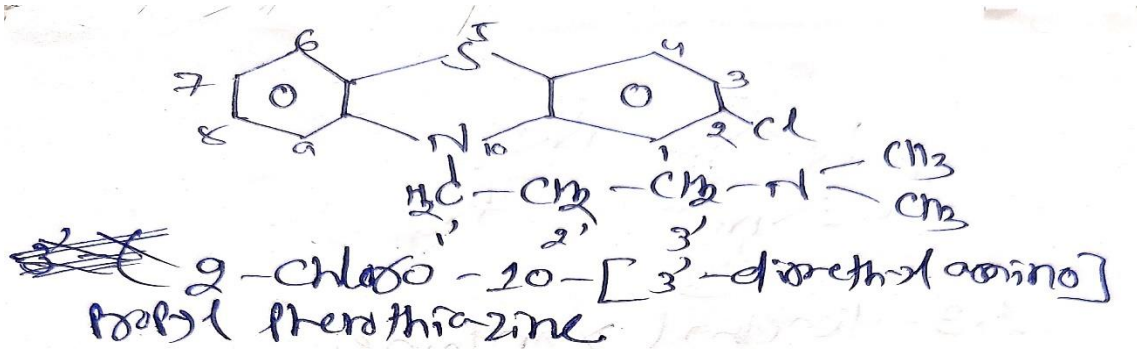 6 S 5 4
7 3
8 2 Cl
9 N 10 1 CH3
H2C - CH2 - CH2 - N CH3
1' 2' 3'
2 - Chloro - 10 - [ 3' - dimethyl amino ]
Propyl Phenothiazine